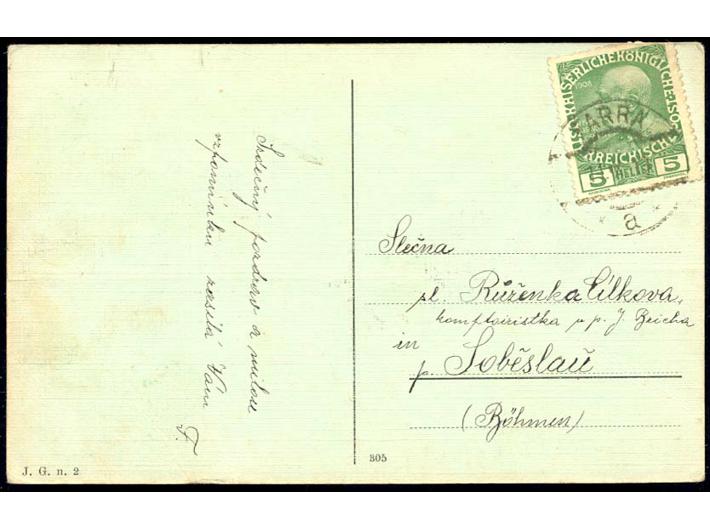 Srdečný pozdrav a milou
vzpomínku zasílá Vám
F.
J. G. n. 2
305
KAISERLICHE KÖNIGLICHE ÖSTERREICHISCHE
1908
5 HELLER 5
SARRA
a
Slečna
sl. Růženka Cílkova,
komptoiristka u p. J. Zeicha
in
p. Soběslau
(Böhmen)